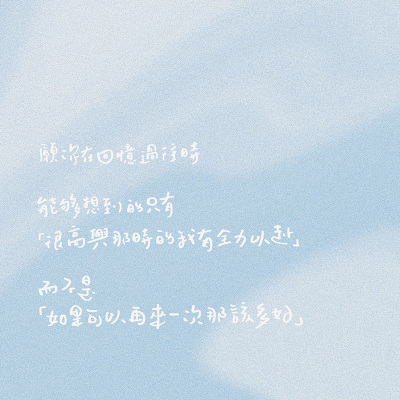 願你在回憶過往時
能夠想到的只有
「很高興那時的我有全力以赴」
而不是
「如果可以再來一次那該多好」